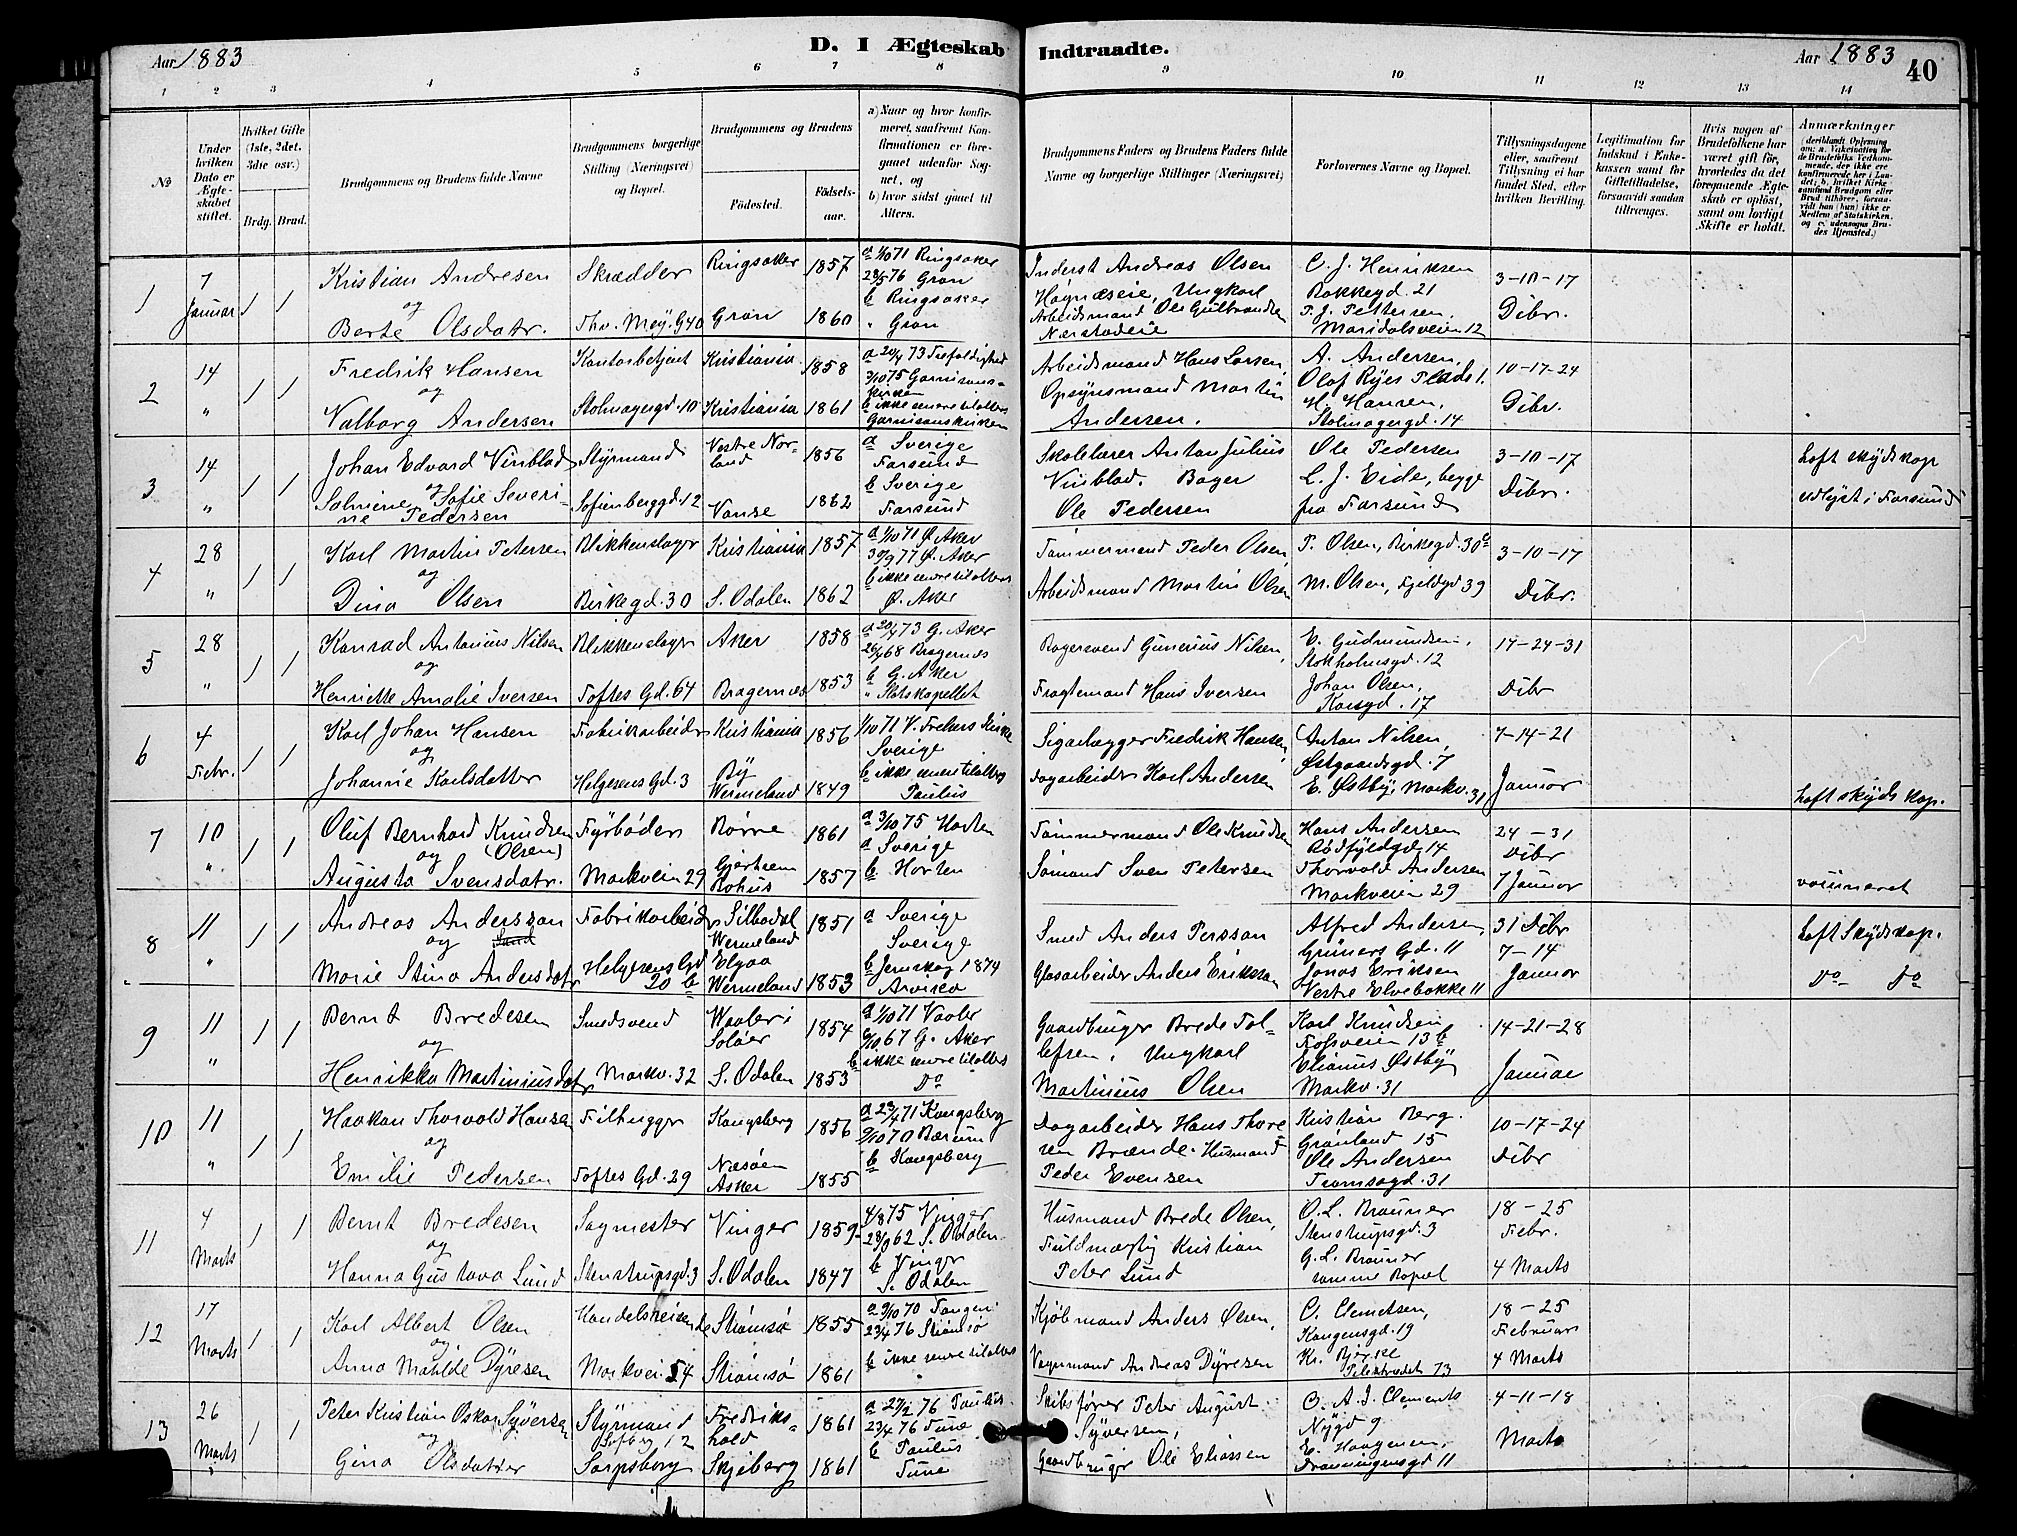 Aar 1883
D. I Ægteskab Indtraadte.
Aar 1883
40
1 2 3 4 5 6 7 8 9 10 11 12 13 14
No
Under hvilken Dato er Ægteskabet stiftet.
Hvilket Gifte (1ste, 2det, 3die osv.)
Brdg. Brud.
Brudgommens og Brudens fulde Navne
Brudgommens borgerlige Stilling (Næringsvei) og Bopæl.
Brudgommens og Brudens
Födested. Födselsaar.
a) Naar og hvor konfirmeret, saafremt Konfirmationen er foregaaet udenfor Sognet, og
b) hvor sidst gaaet til Alters.
Brudgommens Faders og Brudens Faders fulde Navne og borgerlige Stillinger (Næringsvei)
Forlovernes Navne og Bopæl.
Tillysningsdagene eller, saafremt Tillysning ei har fundet Sted, efter hvilken Bevilling.
Legitimation for Indskud i Enkekassen samt for Giftetilladelse, forsaavidt saadan tiltrænges.
Hvis nogen af Brudefolkene har været gift för, hvorledes da det foregaaende Ægteskab er oplöst, samt om lovligt Skifte er holdt.
Anmærkninger
(deriblandt Oplysning om: a. Vakcination for de Brudefolks Vedkommende, der ikke ere konfirmerede her i Landet; b. hvilket Kirkesamfund Brudgom eller Brud tilhörer, forsaavidt han (hun) ikke er Medlem af Statskirken, og c. udensogns Brudes Hjemsted.)
1
7 Januar
1 1
Kristian Andresen
og
Berte Olsdatr.
Skrædder
Thv. Mey. G 40
Ringsaker 1857
Gran 1860
a 1/10 71 Ringsaker
28/5 76 Gran
b Ringsaker
" Gran
Inderst Andreas Olsen
Høynæseie, Ungkarl
Arbeidsmand Ole Gulbrandsen
Nærstadeie
C. J. Henriksen
Bakkegd. 21
P. J. Pettersen,
Maridalsveien 12
3-10-17
Dibr.
2
14
"
1 1
Fredrik Hansen
og
Valborg Andersen
Kontorbetjent
Stolmagergd. 10
Kristiania 1858
Kristiania 1861
a 20/4 73 Trefoldighed
3/10 75 Garnisons-
kirken
b ikke enere til alters
Garnisonskirken
Arbeidsmand Hans Larsen
Opsynsmand Martin
Andersen.
A. Andersen,
Olaf Ryes Plads 1.
H. Hansen,
Stolmagergd. 14
10-17-24
Dibr.
3
14
"
1 1
Johan Edvard Vinblad
og
Salmine Sofie Severi-
ne Pedersen
Styrmand
Sofienberggd. 12
Vestre Nor-
land 1856
Vanse 1862
a Sverige
Farsund
b Sverige
Farsund
Skolelærer Anton Julius
Vinblad. Bager
Ole Pedersen
Ole Pedersen
L. J. Eide, begge
fra Farsund
3-10-17
Dibr.
haft skydskop
udlyst i Farsund
4
28
"
1 1
Karl Martin Petersen
og
Dina Olsen
Blikkenslager
Birkegd. 30
Kristiania 1857
S. Odalen 1862
a 1/10 71 Ø. Aker
30/9 77 Ø. Aker
b ikke enere til alters
Ø. Aker
Tømmermand Peder Olsen,
Arbeidsmand Martin Olsen
P. Olsen, Birkegd. 30 b
M. Olsen, Fjeldgd 39
3-10-17
Dibr.
5
28
"
1 1
Konrad Antonius Nilsen
og
Henriette Amalie Iversen
Blikkenslagr
Toftes Gd. 64
Aker 1858
Bragernæs 1853
a 20/4 73 G. Aker
26/4 68 Bragernes
b G. Aker
" Slotskapellet
Bagersvend Gunerius Nilsen,
Fragtemand Hans Iversen
E. Gudmundsen,
Stokholmsgd. 12
Johan Olsen,
Korsgd. 17
17-24-31
Dibr
6
4
Febr.
1 1
Karl Johan Hansen
og
Johanne Karlsdatter
Fabrikarbeider
Helgesens Gd. 3
Kristiania 1856
By
Wermeland 1849
1/10 71 V. Frelsers Kirke
Sverige
b ikke enere til alters
Paulus
Sigarlægger Fredrik Hansen,
Dagarbeider Karl Andersen
Anton Nilsen,
Østgaardsgd. 7
E. Østby, Markv. 31
7-14-21
Januar
haft skyds kop.
7
10
"
1 1
Oluf Bernhard Knudsen
(Olsen)
og
Augusta Svensdatr.
Fyrbøder
Markveien 29
Borre 1861
Bohus 1857
a 3/10 75 Horten
a Sverige
b Horten
Tømmermand Ole Knudsen
Sømand Sven Petersen
Hans Andersen
Rødfyldgd. 14
Thorvald Andersen
Markveien 29
24-31
Dibr
7 Januar
vaccineret
8
11
"
1 1
Andreas Andersson
og
Marie Stina Andersdatr
Fabrikarbeidr
Helgesens Gd
20 b
Silbodal
Wermeland 1851
Elgaa
Wermeland 1853
a Sverige
Sverige
b Jemskog 1874
Arvika
Smed Anders Persson
Glasarbeider Anders Eriksson
Alfred Andersen,
Grüners Gd. 11
Jonas Eriksen
Vestre Elvebakke 11
31 Dibr
7-14
Januar
haft Skydskop.
Do Do
9
11
"
1 1
Bernt Bredesen
og
Henrikka Martiniusdatr
Smedsvend
Markv. 32
Waaler i
Soløer 1854
S. Odalen 1853
a 1/10 71 Vaaler
6/10 67 G. Aker
b ikke enere til alters
Do
Gaardbruger Brede Tol-
lefsen, Ungkarl
Martinius Olsen
Karl Knudsen
Fossveien 13 b
Elianus Østby
Markv. 31
14-21-28
Januar
10
11
"
1 1
Haakon Thorvald Hansen
og
Emilie Pedersen
Filhugger
Toftes Gd. 29
Kongsberg 1856
Næsøen
Asker 1855
a 23/4 71 Kongsberg
9/10 70 Bærum
b Kongsberg
Dagarbeider Hans Thore
sen Brænde. Husmand
Peder Evensen
Kristian Berg.
Grønland 15
Ole Andersen
Tromsøgd. 31
10-17-24
Dibr
11
4
Marts
1 1
Bernt Bredesen
og
Hanna Gustava Lund
Sagmester
Stenstrupsgd. 3
Vinger 1859
S. Odalen 1847
4/8 75 Vinger
28/9 62 S. Odalen
b Vinger
S. Odalen
Husmand Brede Olsen,
Fuldmægtig Kristian
Peter Lund
O. L. Brauner
Stenstrupsgd. 3
G. L. Brauner
samme Bopæl
18-25
Febr.
4 Marts
12
17
Marts
1 1
Karl Albert Olsen
og
Anna Matilde Dyresen
Handelsreisende
Markvei 54
Strømsø 1855
Strømsø 1861
a 9/10 70 Tangen
23/4 76 Strømsø
b ikke enere til alters
"
Kjøbmand Anders Olsen,
Vognmand Andreas Dyresen
O. Clemetsen,
Kongensgd. 19
Kr. Bjerke
Pilestrædet 73
18-25
Februar
4 Marts
13
26
Marts
1 1
Peter Kristian Oskar Syversen
og
Gina Olsdatter
Styrmand
Sofbg 12
Sarpsborg
Fredriks-
hald 1861
Skjeberg 1861
a 27/2 76 Paulus
23/4 76 Tune
b Paulus
Tune
Skibsfører Peter August
Syversen,
Gaardbruger Ole Eliassen
O. A. J. Clements
Nygd 9
E. Haagensen,
Dronningensgd 11
4-11-18
Marts